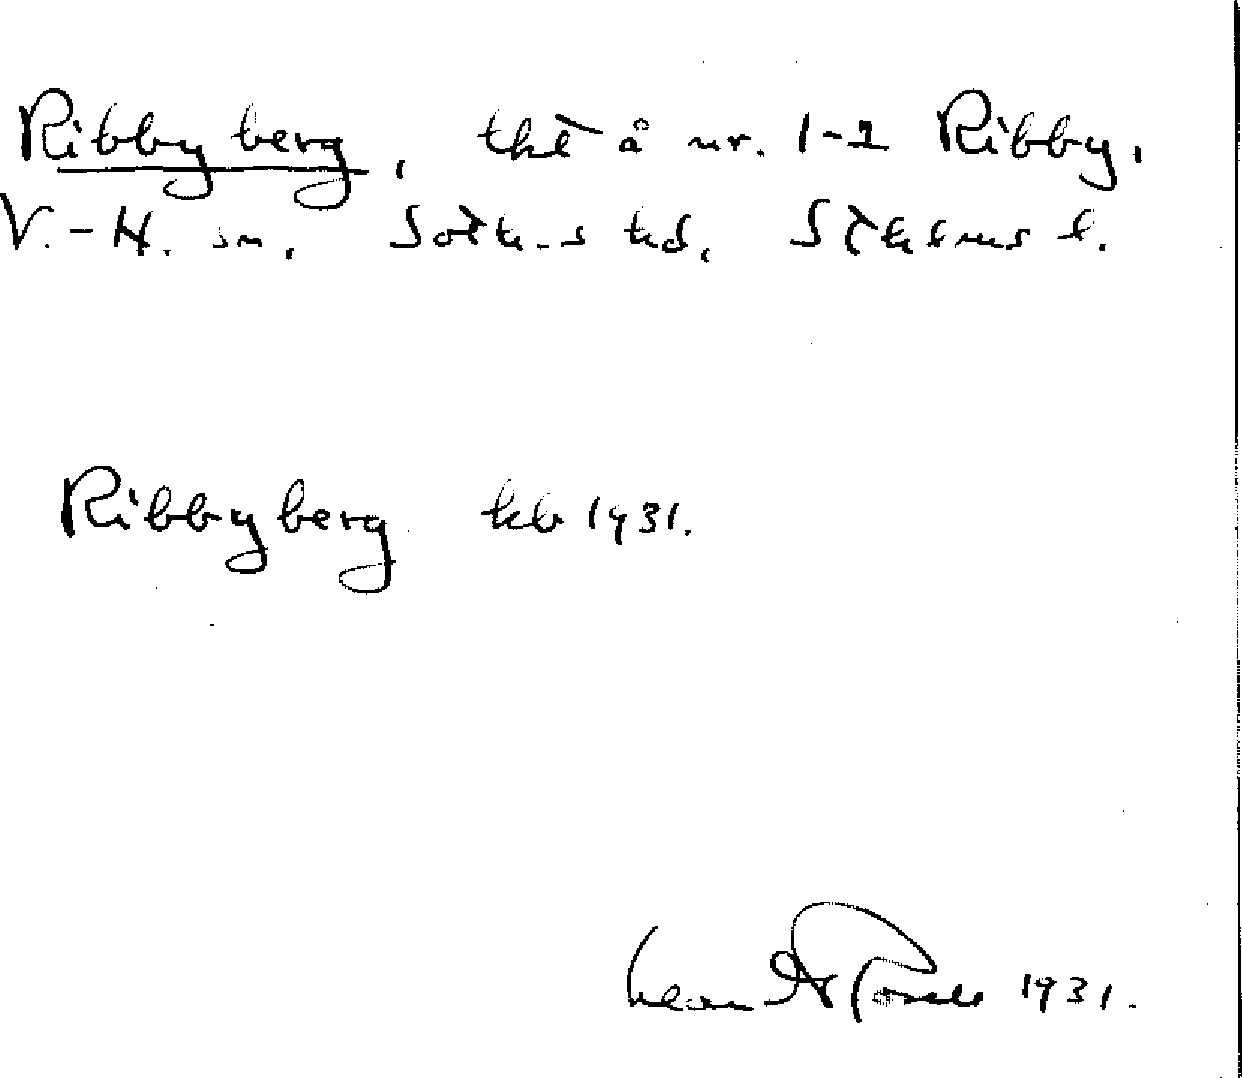 Ribbyberg, tht å nr. 1-2 Ribby,
V.-H. sn, Soth-s hd, Sthlms l.
Ribbyberg kb 1931.
1931.